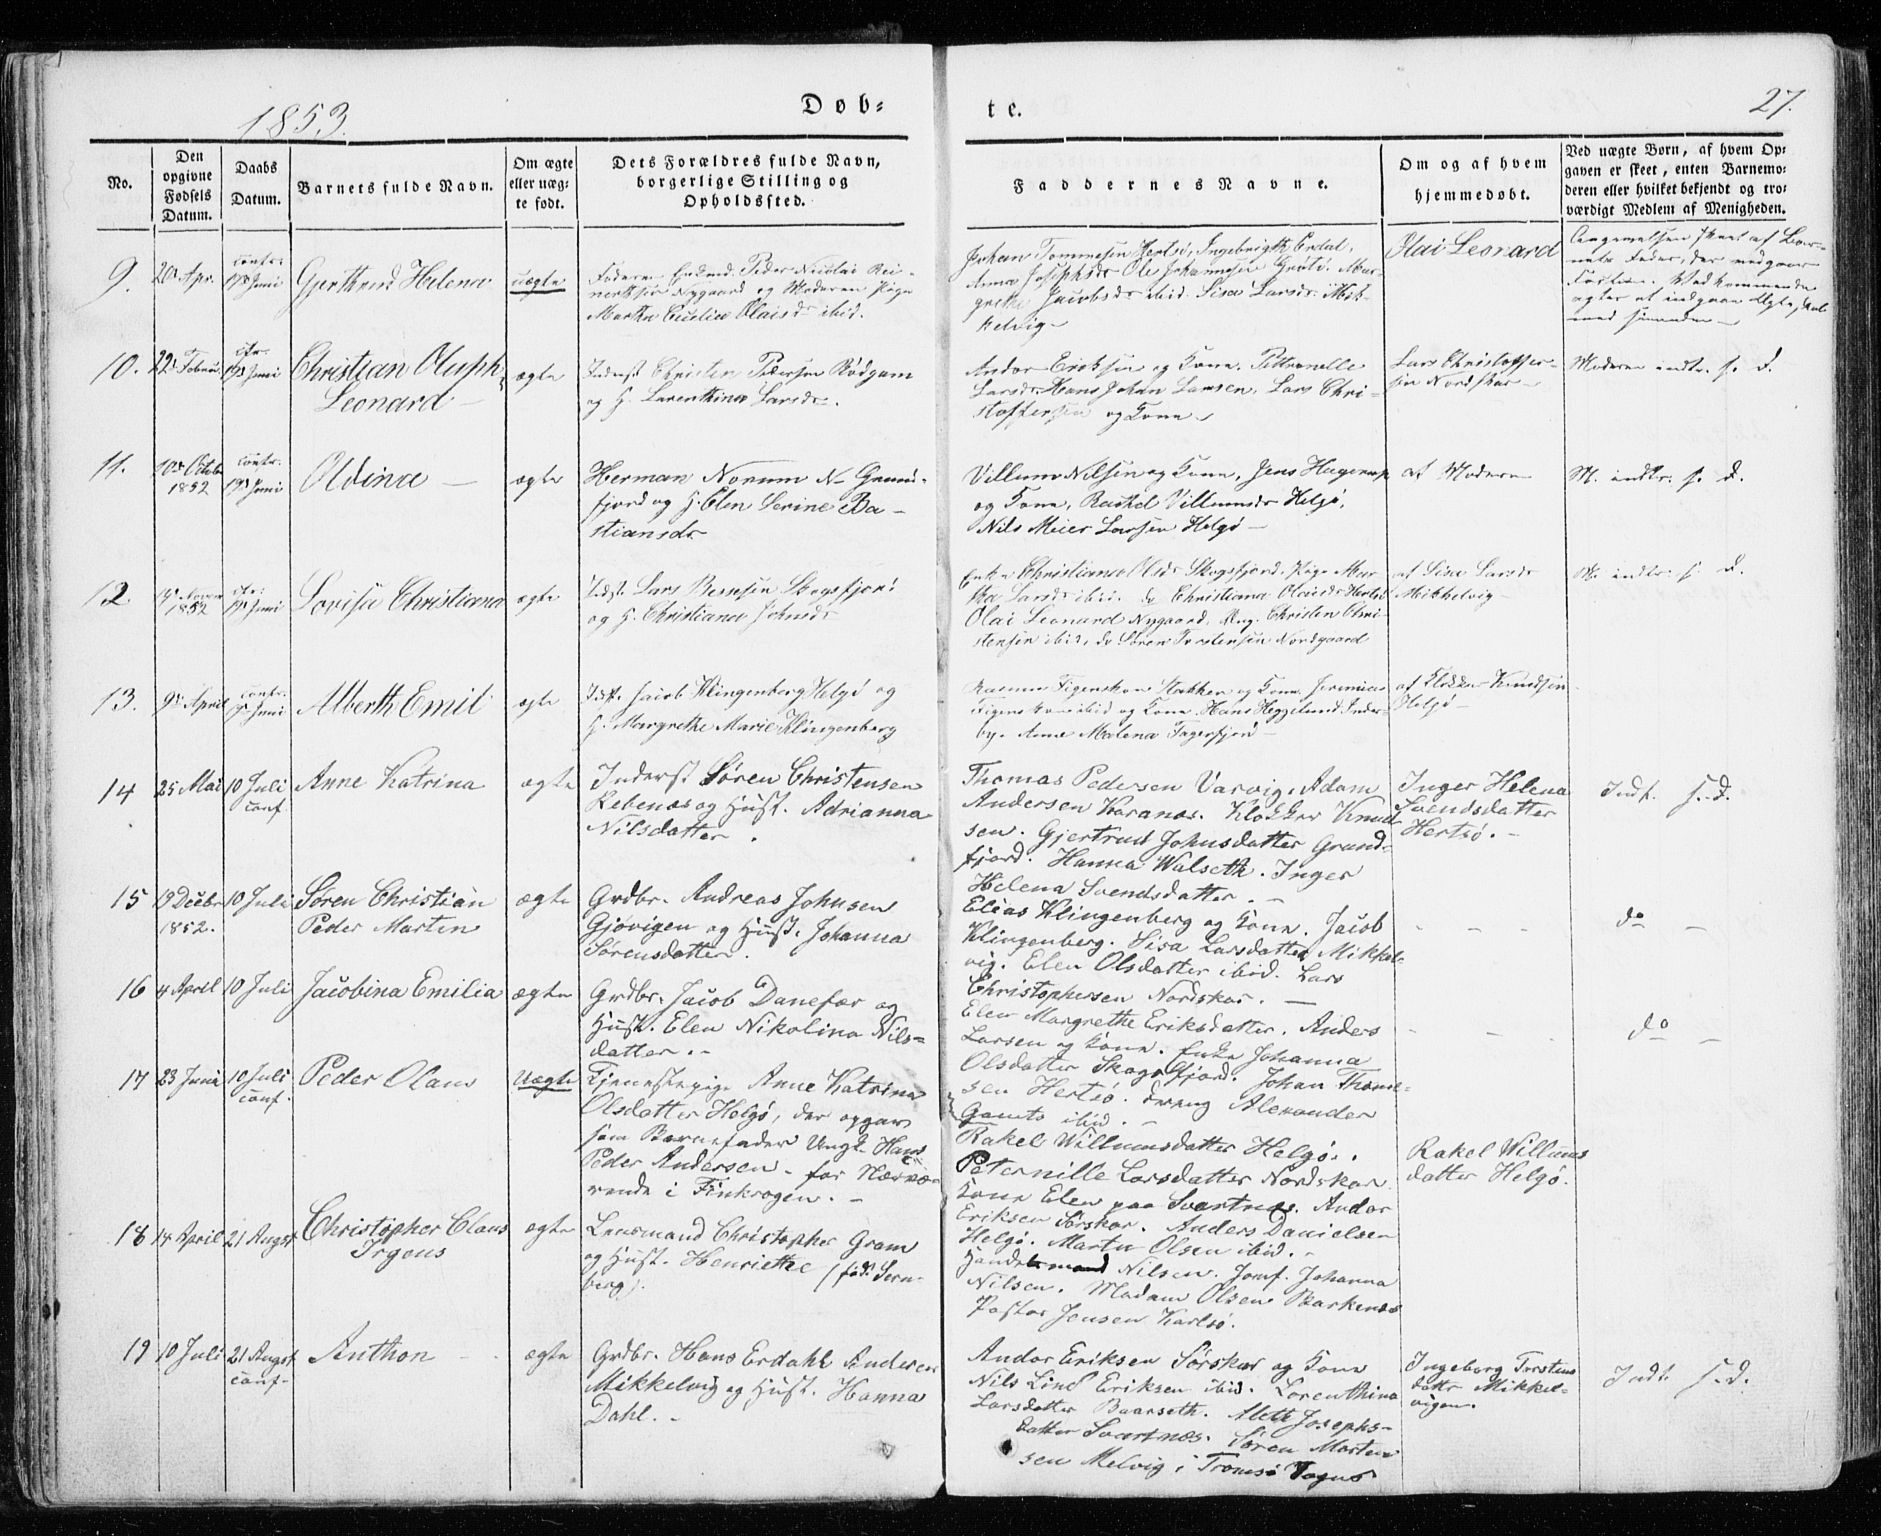 1853.
Døb-
te.
27.
No.
Den opgivne Fødsels Datum.
Daabs Datum.
Barnets fulde Navn.
Om ægte eller uæg- te født.
Dets Forældres fulde Navn, borgerlige Stilling og Opholdssted.
Faddernes Navne.
Om og af hvem hjemmedøbt.
Ved uægte Børn, af hvem Op- gaven er skeet, enten Barnemo- deren eller hvilket bekjendt og tro- værdigt Medlem af Menigheden.
9. 20de Apr. 19de Juni Gjerthrud Helena uægte
Peder Nicolai
Nygaard og Moderen Pige
Martha Olaisdr ibid.
Johan Tommesen Hertsø, Ingebrigth Erdal,
Anna Josephsdr Ole Johannesen Grøtø. Mar-
grethe Jacobsdr ibid. Sisa Larsdr Mik-
kelvig
Olai Leonard
10. 22de Februar 19de Juni Christian Oluph
Leonard
ægte
Inderst Christen Pedersen Rødgam
og H. Larenthina Larsdr.
Andor Eriksen og Kone. Pettronelle
Larsdr. Hans Johan Larsen, Lars Chri-
stoffersen og Kone
Lars Christoffer-
sen Nordskar
Moderen indtr. s. D.
11. 10de Octobr
1852
contr.
19de Juni
Oldine
ægte
Herman Norum N. Grund-
fjord og H. Elen Serine Ba-
stiansdr
Villum Nilsen og Kone, Jens Hagerup
og Kone, Rachel Villumsdr Helgø,
Nils Meier Larsen Helgø
af Moderen
M. indtr. s. D.
12. 1852 19de Juni
Lovisa Christiana
ægte
Indst. Lars Bernsen Skogsfjord
og H. Christiana Johnsdr
Enke Christiana Olsdr Skogsfjord. Pige Mar-
tha Larsdr ibid. do Christiana Olaisdr Hertsø
Olai Leonard Nygaard, Ung. Christen Chri-
stensen ibid, do Søren Torstensen Nordgaard
af Sisa Larsdr
Mikkelvig
M. indtr. s. D.
13. 9de April
contr.
19de Juni
Alberth Emil
ægte
Indst. Jacob Klingenberg Helgø og
H. Margrethe Marie Klingenberg
Rasmus Figenskou Stakken og Kone, Jeremias
Figenskou ibid og Kone. Hans Heggelund Inder-
by. Anne Malena Fagerfjord
af Klokker Knudsen
Helgø
14 25 Mai 10 Juli
conf.
Anne Katrina
ægte
Inderst Søren Christensen
Rebenes og Hust. Adrianna
Nilsdatter.
Thomas Pedersen Varvig. Adam
Andersen Karanes. Klokker Knud-
sen. Gjertrud Johnsdatter Grund-
fjord. Hanna Walseth. Inger
Helena Svendsdatter.
Inger Helena
Svendsdatter
Hertsø.
Indt. s. d.
15 19 Decbr
1852.
10 Juli
Søren Christian
Peder Martin
ægte
Grdbr. Andreas Johnsen
Gjøvigen og Hust. Johanna
Sørensdatter.
Elias Klingenberg og Kone. Jacob
Klingenberg. Sisa Larsdatter Mikkel-
vig. Elen Olsdatter ibid. Lars
Christophersen Nordskar.
do
16 4 April 10 Juli Jacobina Emilia ægte
Grdbr. Jacob Danefær og
Hust. Elen Nikolina Nils-
datter.
Elen Margrethe Eriksdatter. Anders
Larsen og Kone. Enke Johanna
Olsdatter Skogsfjord. Johan Thom-
sen Hertsø. Dreng Alexander
Gamst ibid.
do
17 23 Juni 10 Juli
conf.
Peder Olaus
Uægte
Tjenestepige Anne Katrina
Olsdatter Helgø, der opgav
som Barnefader Ungk. Hans
Peder Andersen - for Nærvæ-
rende i Finkrogen.
Rakel Willumsdatter Helgø.
Peternille Larsdatter Nordskar
Kone Elen paa Svartnes. Andor
Eriksen Sørskar. Anders Danielsen
Helgø. Martin Olsen ibid.
Rakel Willums
datter Helgø.
18 14 April 21 Augst
Christopher Claus
Irgens
ægte
Lensmand Christopher Gram
og Hust. Henriette (fød Sorn-
berg).
Handelsmand Nilsen. Jomf. Johanna
Nilsen. Madam Olsen Barkenes
Pastor Jensen Karlsø.
19 10 Juli 21 Augst
conf.
Anthon
ægte
Grdbr. Hans Erdahl Andersen
Mikkelvig og Hust. Hanna
Dahl.
Andor Eriksen Sørskar og Kone
Nils Lind Eriksen ibid. Lorenthina
Larsdatter Baarseth. Aleth Josephs-
datter Svartnes. Søren Morten-
sen Melvig i Tromsø Sogns
Ingeborg Torstens
datter Mikkel-
vigen.
Indt. s. d.